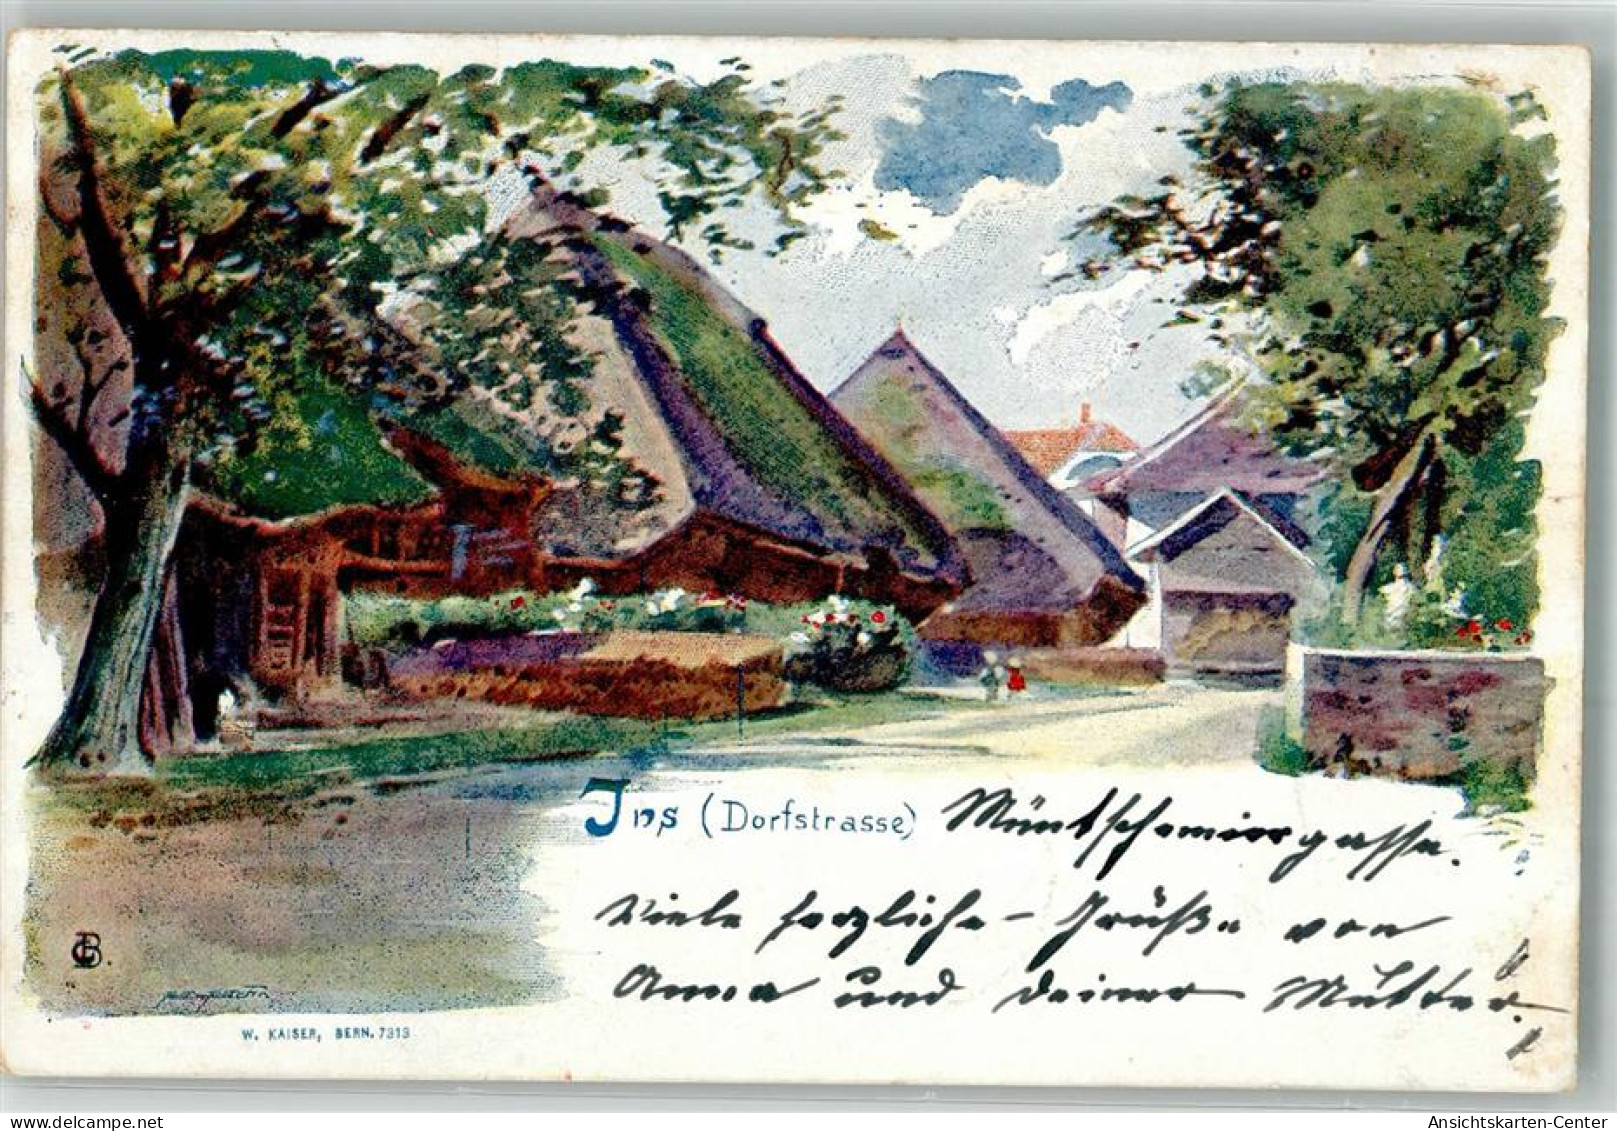 Ins (Dorfstrasse) Müntschemiergasse.
Viele herzliche - Grüße von
Anna und deiner Mutter.
CB.
W. KAISER, BERN. 7313
Ansichtskarten-Center